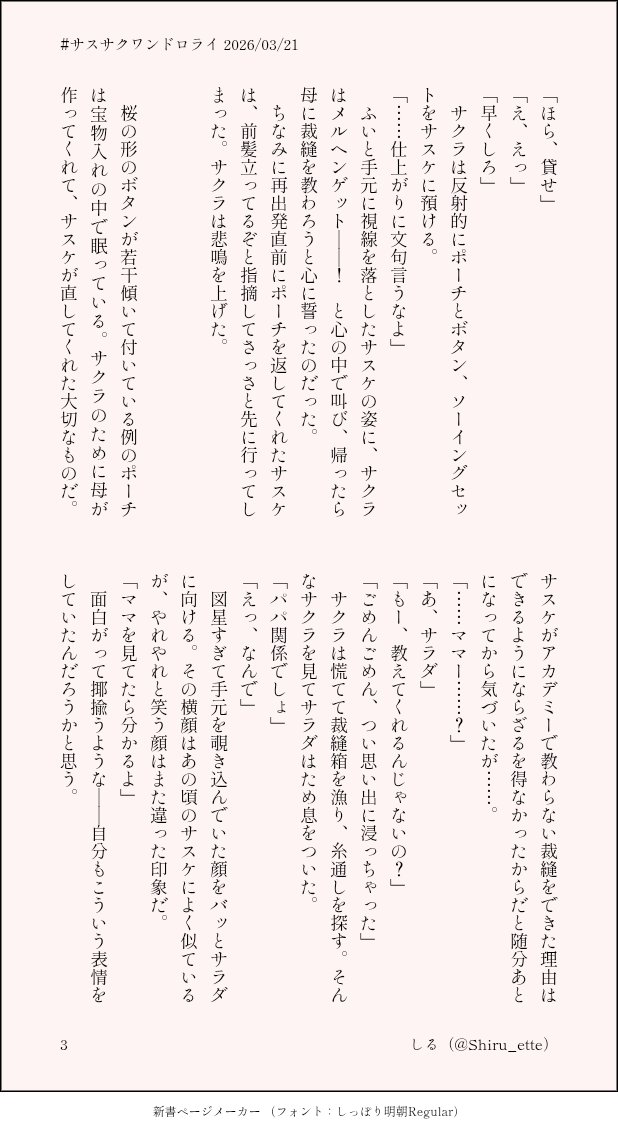 #サスサクワンドロライ 2026/03/21
「ほら、貸せ」
「え、えっ」
「早くしろ」
　サクラは反射的にポーチとボタン、ソーイングセッ
トをサスケに預ける。
「……仕上がりに文句言うなよ」
　ふいと手元に視線を落としたサスケの姿に、サクラ
はメルヘンゲット――！　と心の中で叫び、帰ったら
母に裁縫を教わろうと心に誓ったのだった。
　ちなみに再出発直前にポーチを返してくれたサスケ
は、前髪立ってるぞと指摘してさっさと先に行ってし
まった。サクラは悲鳴を上げた。
　桜の形のボタンが若干傾いて付いている例のポーチ
は宝物入れの中で眠っている。サクラのために母が
作ってくれて、サスケが直してくれた大切なものだ。
サスケがアカデミーで教わらない裁縫をできた理由は
できるようにならざるを得なかったからだと随分あと
になってから気づいたが……。
「……ママー……？」
「あ、サラダ」
「もー、教えてくれるんじゃないの？」
「ごめんごめん、つい思い出に浸っちゃった」
　サクラは慌てて裁縫箱を漁り、糸通しを探す。そん
なサクラを見てサラダはため息をついた。
「パパ関係でしょ」
「えっ、なんで」
　図星すぎて手元を覗き込んでいた顔をバッとサラダ
に向ける。その横顔はあの頃のサスケによく似ている
が、やれやれと笑う顔はまた違った印象だ。
「ママを見てたら分かるよ」
　面白がって揶揄うような――自分もこういう表情を
していたんだろうかと思う。
3
しる（@Shiru_ette）
新書ページメーカー（フォント：しっぽり明朝Regular）